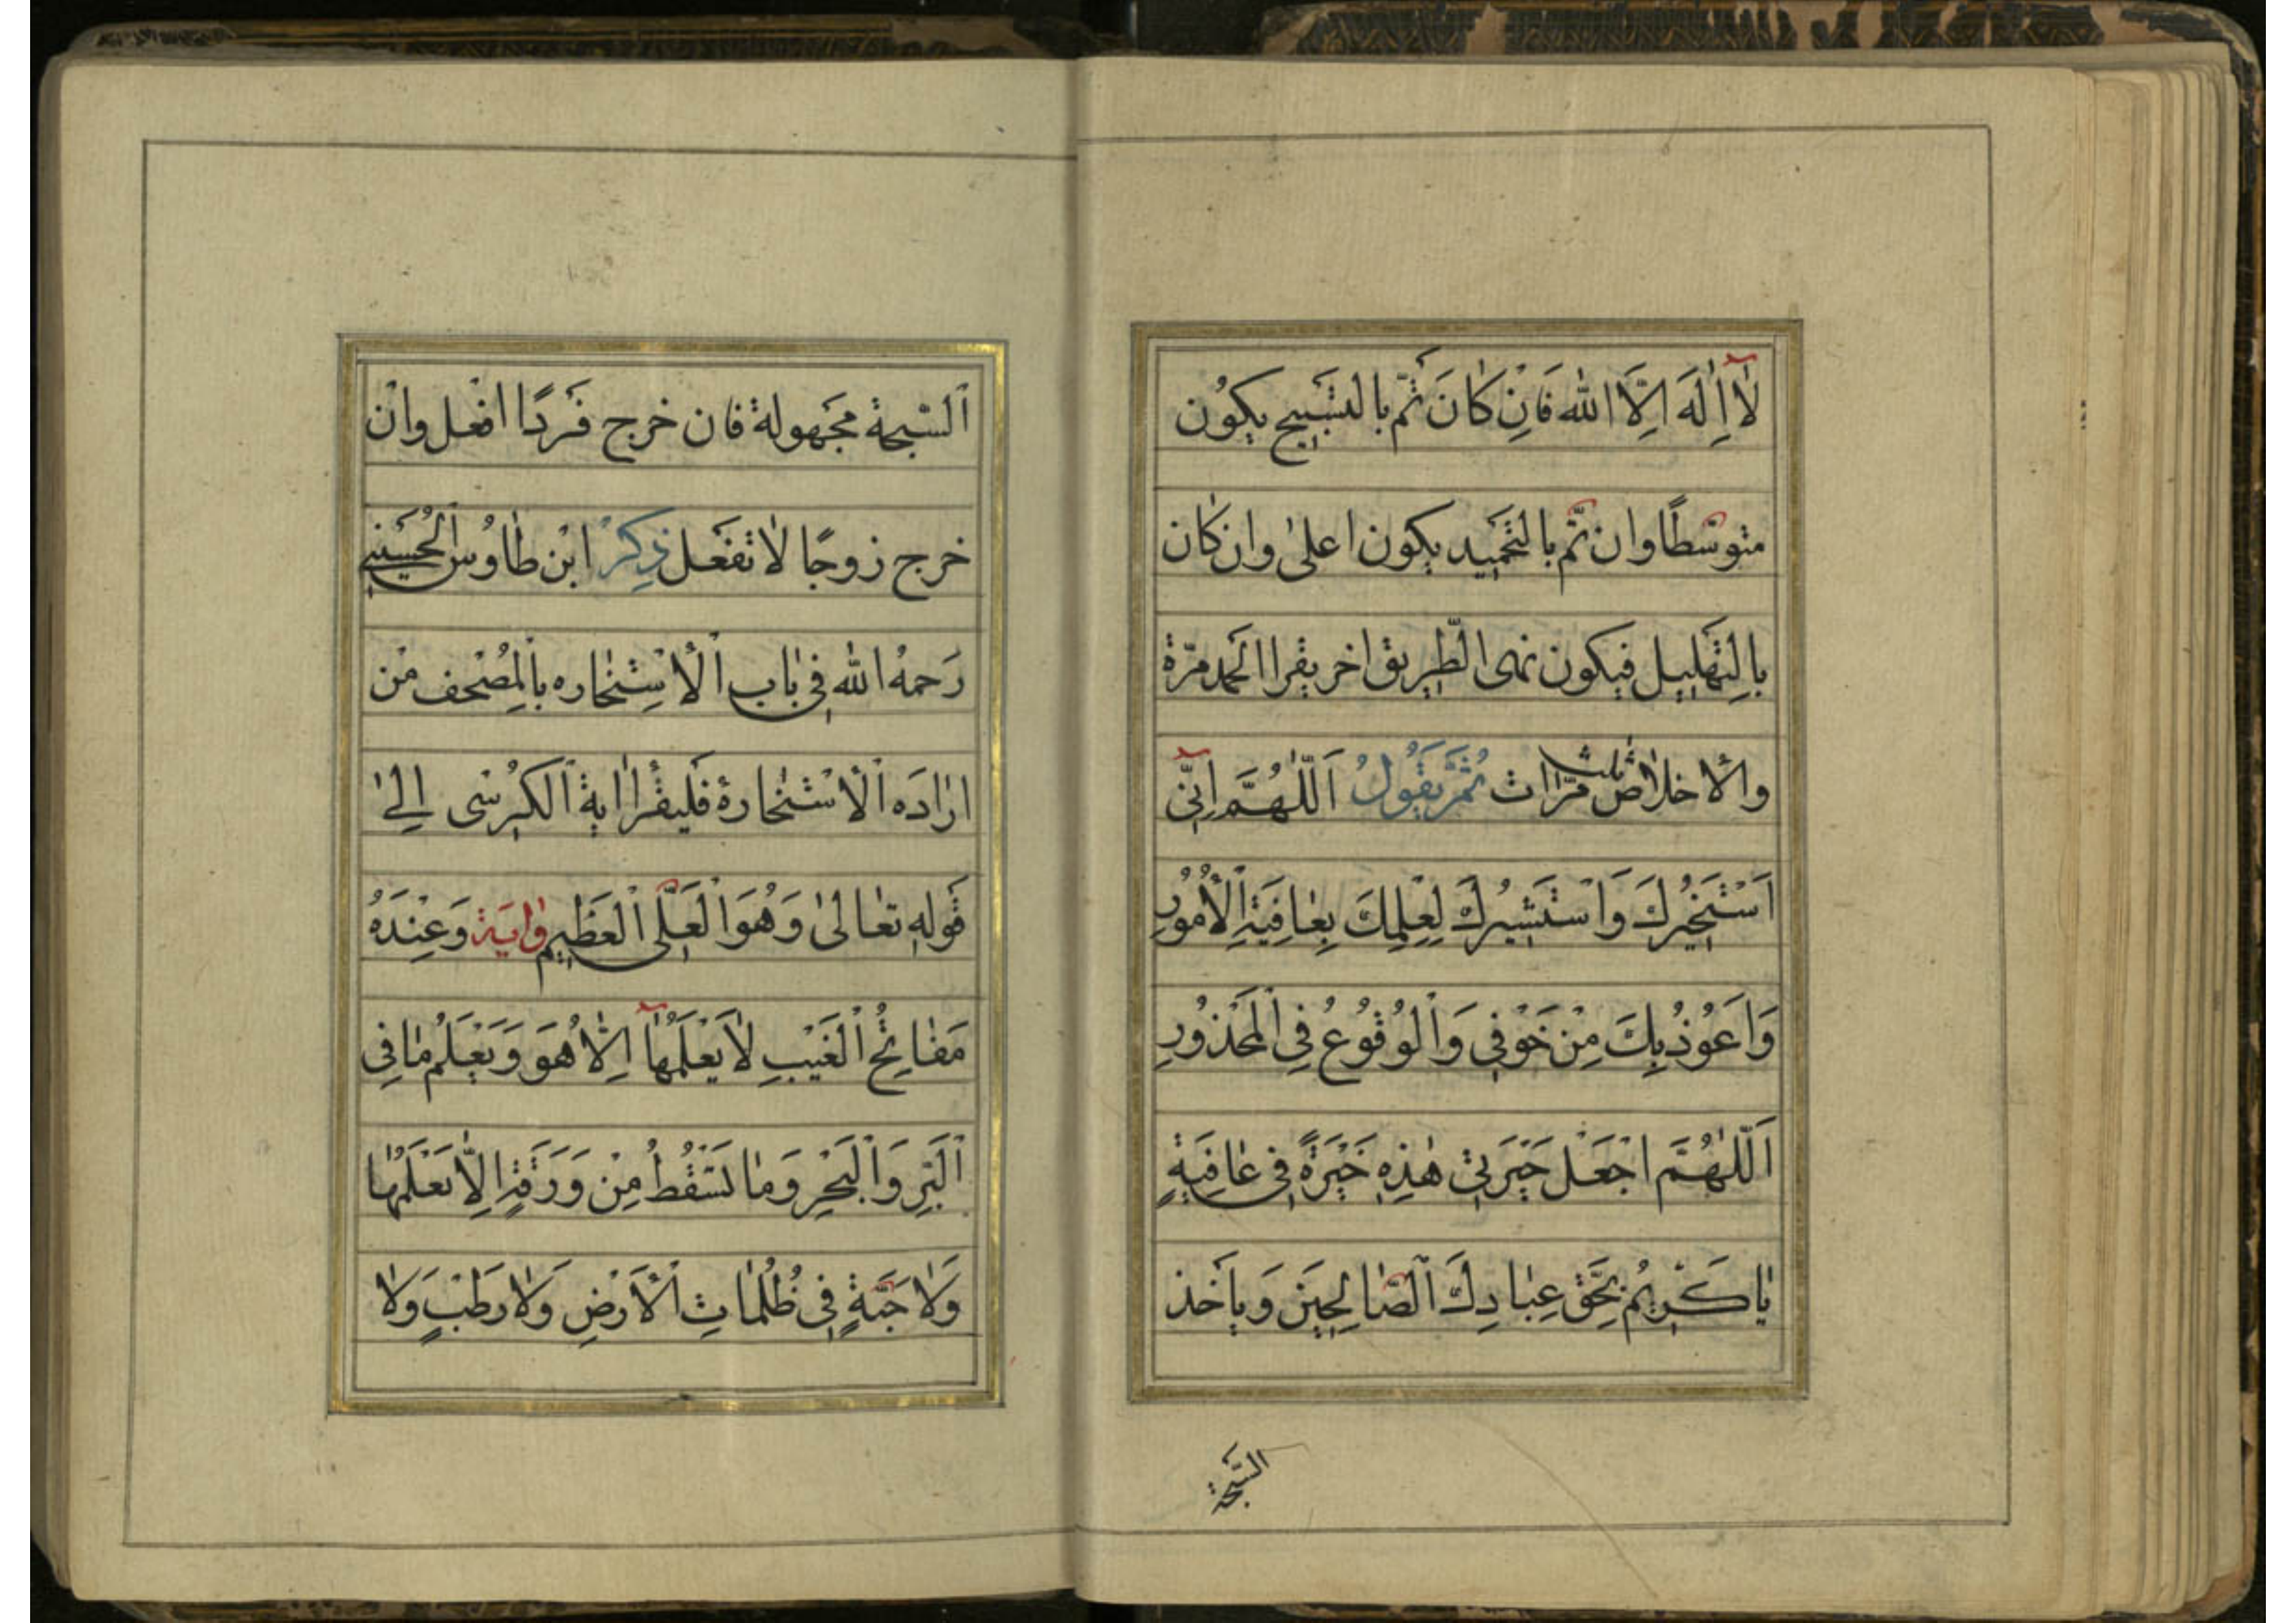 لٰآ اِلٰهَ اِلَّا اللّٰه فَاِنْ كٰانَ تَمّ بالتَسْبيح يكوُن
متوسّطًا وان تمّ بالتحَميد يكون اعلىٰ وان كٰان
بالِتهَليل فيكون نهى الطّريق اخر يقرا الحَمد مرّة
والاخلاٰص ثلث مرّات ثُمَّ يَقُولُ اَللّٰهُمَّ اِنّىٓ
اَسْتَخيُركَ وَاَسْتَشيُركَ لِعِلمِكَ بِعٰافِيَةِ اْلاُمُورِ
وَاَعُوُذُ بِكَ مِنْ خَوْفى وَاْلوُقُوُعُ فِى اْلمَحْذوُرِ
اَللّٰهُمَّ اجْعَل خيَرَتى هٰذِهِ خَيَرةً فى عٰافِيَةٍ
يٰا كَريُم بحَقّ عِبٰادِكَ اْلصّٰالِحيَن وَيأخَذ
السّبحة
اْلسّبحة مجَهولة فان خرج فَردًا افعل وان
خرج زوجًا لاٰ تفعَل ذِكرُ ابْن طٰاوُس اْلحُسَيْنى
رَحمهُ اللّٰه فى بٰاب اْلاْسِتخٰاره باْلمِصُحف مْن
ارٰادَه اْلاْسْتخٰارة فَليقْرأ اية اْلكرُسْى اِلىٰ
قوله تعٰالىٰ وَهُوَ اْلعَلّى اْلعَظيم وٰايَة وَعِنْدَهُ
مَفٰاتِحُ اْلغَيْبِ لاٰ يَعْلَمُهٰآ اِلّاٰ هُوَ وَيَعْلَمُ مٰا فِى
اْلبَرِ وَاْلبَحْرِ وَمٰا تَسْقُطُ مِنْ وَرَقَةٍ اِلاّٰ يَعْلَمُهٰا
وَلاٰ حَبّةٍ فى ظُلُمٰاتِ اْلاَرْضِ وَلاٰ رَطْبٍ وَلاٰ